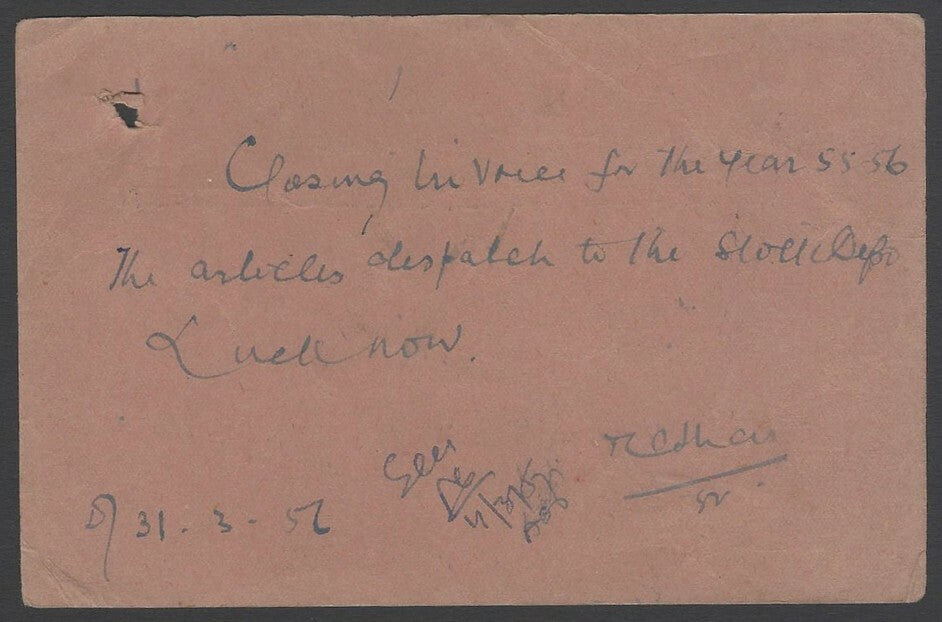 Closing Invoice for the year 55-56
The articles despatch to the Stock Depo
Lucknow.
D/ 31 - 3 - 56